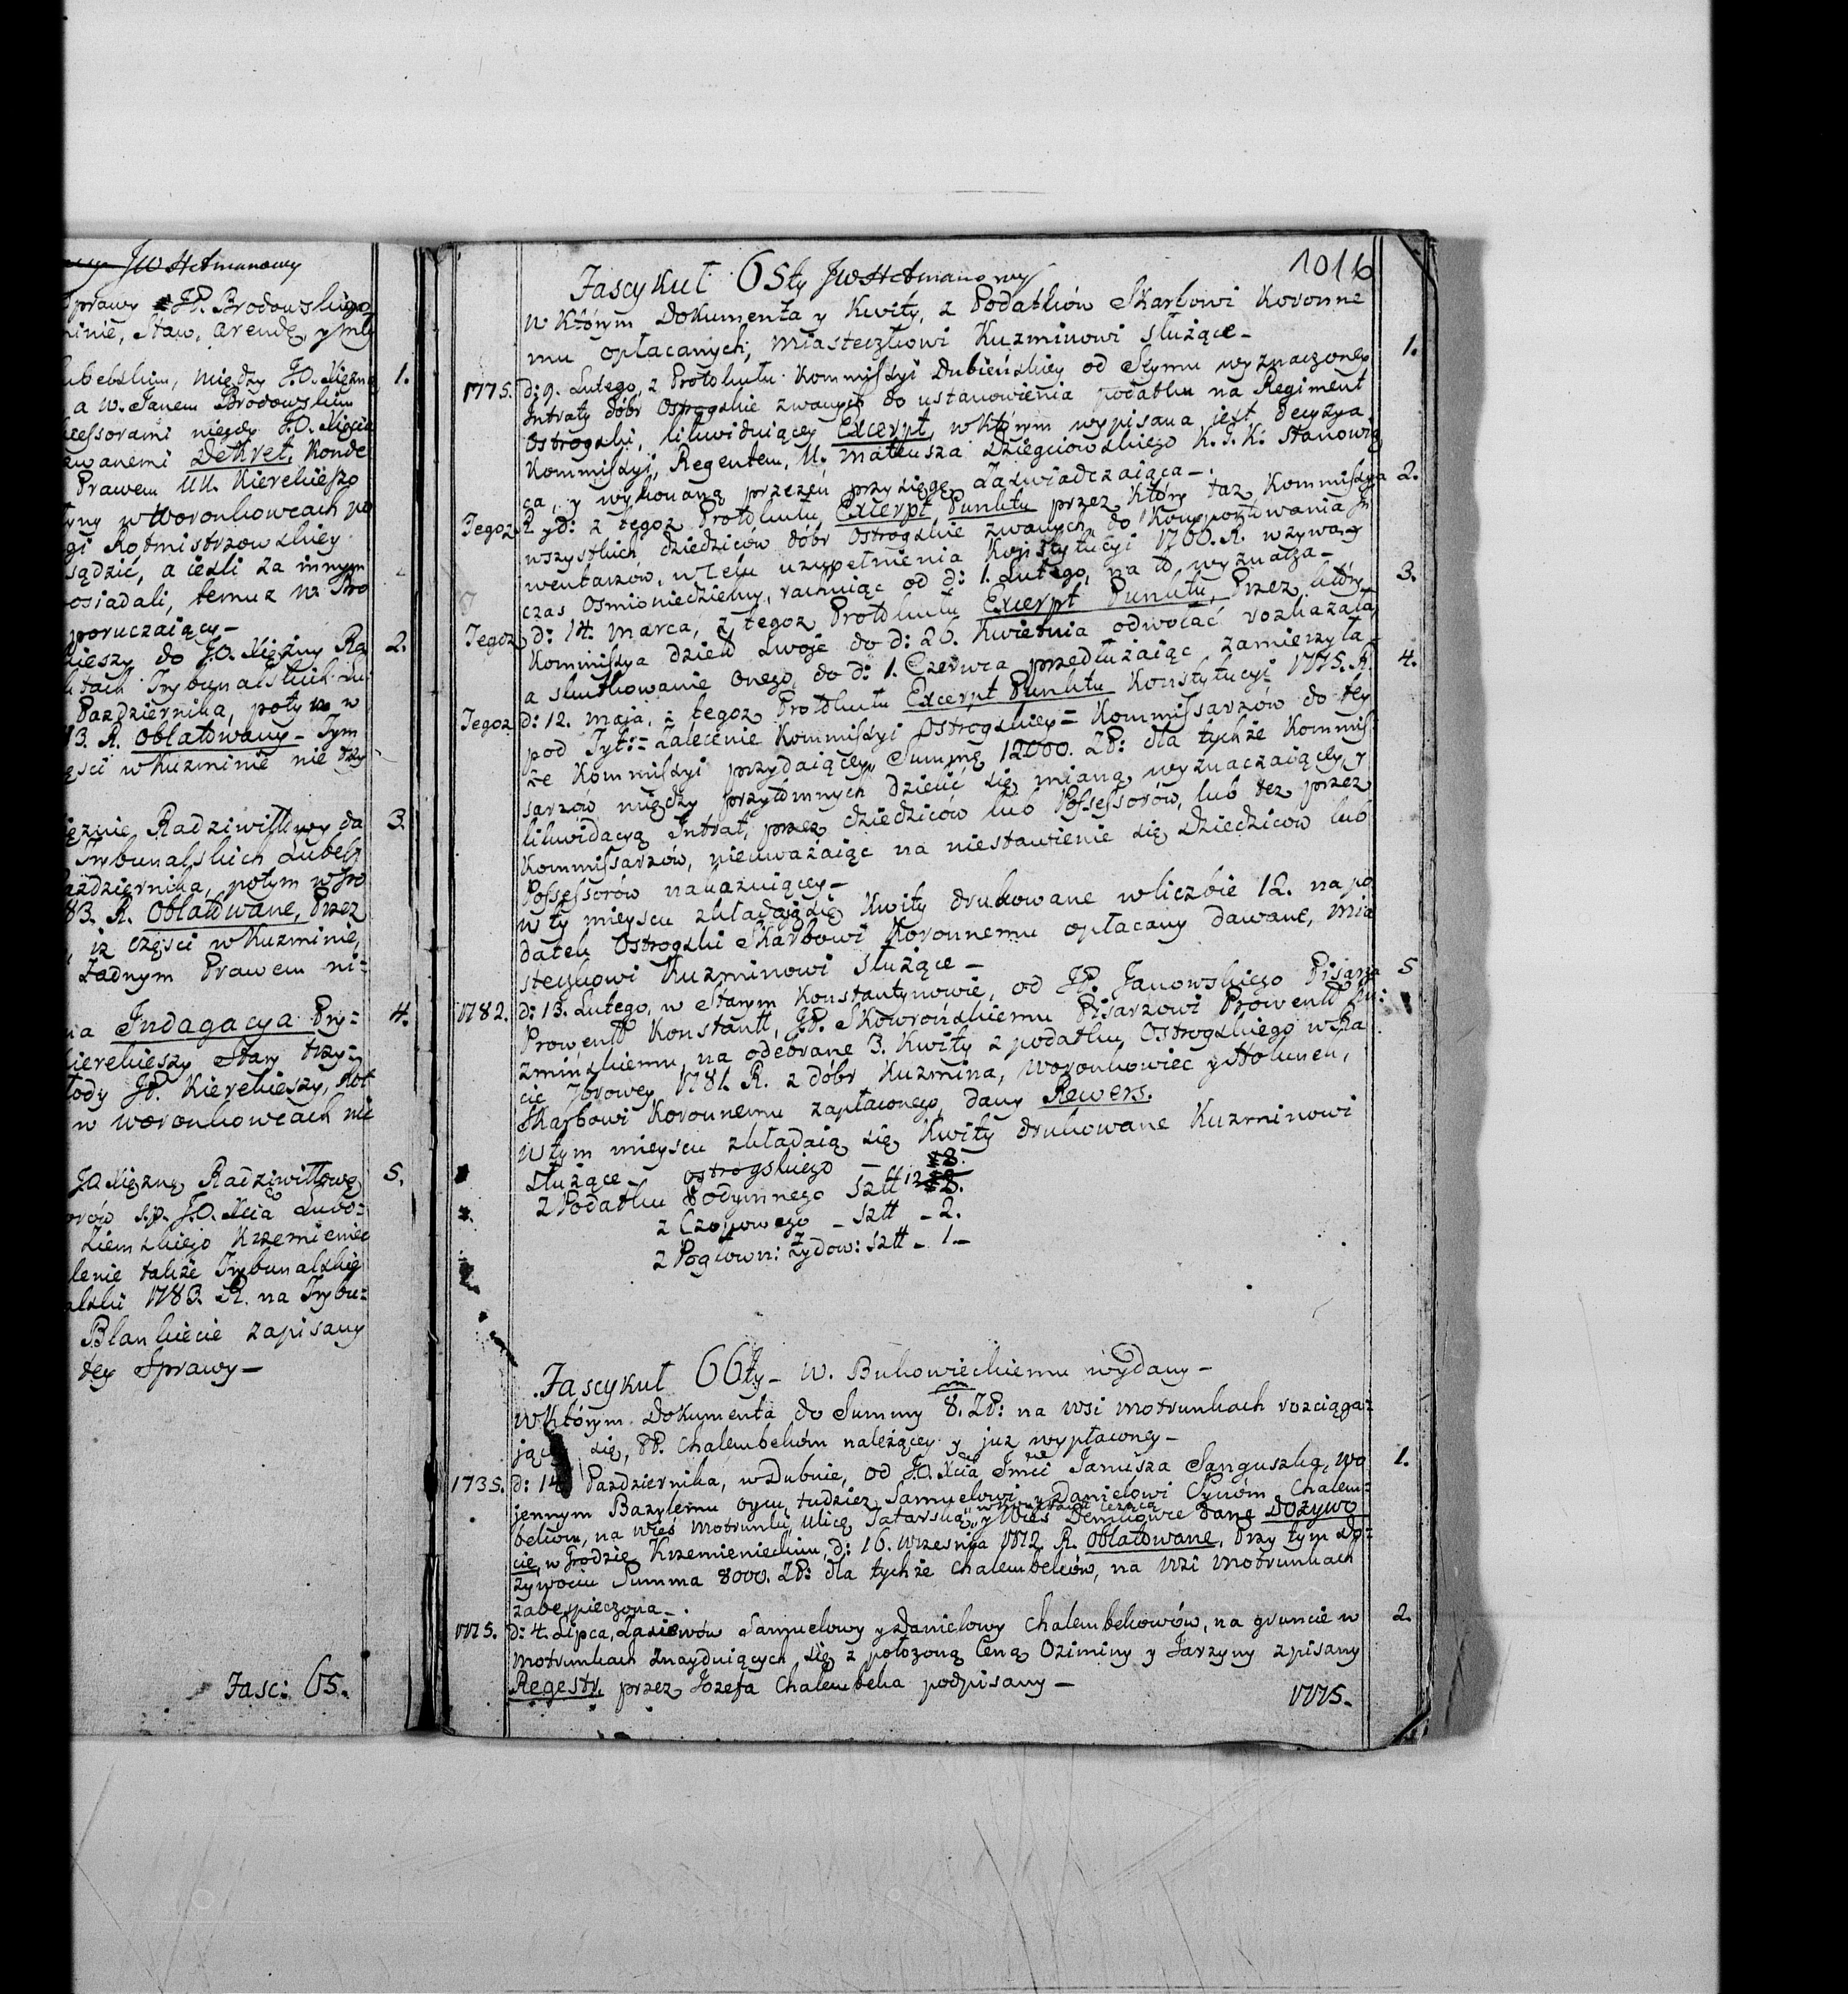 JW Hetmanowy
Sprawy JP. Brodowskiego
minie, Staw, arendę, y mły
ubelskim, między J.O. Xiężną 1.
a W. Janem Brodowskim
scessorami niegdy J.O. Xięcia
zwanemi Dekret, Konde
Prawem UU. Kierekieszo
tyny w Woronkowcach po
gi Rotmistrzowskiey
sądzić, a ieśli za innym
osiadali, temuz w Gro
poruczaiący_
kieszy do J.O. Xiężny Ra 2.
ktach Trybunalskich Lu
Pazdziernika, potym w
83. R. Oblatowany_ Tym
ęści w Kuzminie nie trzy
iężnie Radziwiłłowy da 3.
Trybunalskich Lubels
Pazdziernika, potym w Gro
83. R. Oblatowane, Przez
iż części w Kuzminie,
Żadnym Prawem ni=
na Indagacya Pry= 4.
Kierekieszy Stary trzy=
łody JP. Kierekieszy, Rot
w Woronkowcach nie
J.O. Xiężnę Radziwiłłowę 5.
orów s.p. J.O. Xcia Lubo=
Ziemskiego Krzemieniec
lenie także Trybunalskie
alski 1783. R. na Trybu=
Blankiecie zapisany
tey Sprawy_
Fasc: 65.
1016
Fascykuł 65ty JW Hetmanowy
w którym Dokumenta y Kwity, z Podatków Skarbowi Koronne
mu opłacanych, Miasteczkowi Kuzminowi służące_
1775. d: 9. Lutego, z Protokułu Kommissyi Dubieńskiey od Seymu wyznaczoney 1.
Intraty dóbr Ostrogskie zwanych do ustanowienia podatku na Regiment
Ostrogski, likwiduiącey Excerpt, w którym wypisana jest decyzya
Kommissyi, Regentem, U. Mateusza Dzięgciowskiego K. G. K. Stanowią
ca, y wykonaną przezeń przysięgę Zaświadczaiąca_
Tegoz R. y d: z tegoz Protokułu Excerpt Punktu przez który taz Kommissya 2.
wszystkich dziedziców dóbr Ostrogskie zwanych do Komportowania In
wentarzów, w celu uzupełnienia Konstytucyi 1766. R. wzywa y
czas Osmioniedzielny, rachuiąc od d: 1. Lutego, na to wyznacza_
Tegoz d: 14. Marca, z tegoz Protokułu Excerpt Punktu, Przez który 3.
Kommissya dzieło Swoje do d: 26. Kwietnia odwołać rozkazała,
a skutkowanie onego, do d: 1. Czerwca przedłużaiąc zamierzyła
Tegoz d: 12. Maja, z tegoz Protokułu Excerpt Punktu Konstytucyi 1775. R. 4.
pod Tyt:= Zalecenie Kommissyi Ostrogskiey= Kommissarzów do tey
że Kommissyi przydaiącey, Summę 12000. ZP: dla tychże Kommis
sarzów między przytomnych dzielić się mianą wyznaczaiącey, y
likwidacyą Intrat, przez dziedziców lub Possessorów, lub tez przez
Kommissarzów, nieuważaiąc na niestawienie się dziedziców lub
Possessorów nakazuiącey_
w ty mieyscu zkładaią się Kwity drukowane w liczbie 12. na po
datek Ostrogski Skarbowi Koronnemu opłacany dawane, Mia
steczkowi Kuzminowi służące_
1782. d: 13. Lutego, w Starym Konstantynowie, od JP. Janowskiego Pisarza 5
Prowentt Konstantt, JP. Skowrońskiemu Pisarzowi Prowentt Ku:
zmińskiemu, na odebrane 3. Kwity z podatku Ostrogskiego w Ra
cie 7browey 1781. R. z dóbr Kuzmina, Woronkowiec y Hołunek,
Skarbowi Koronnemu zapłaconego, dany Rewers.
w tym mieyscu zkładaią się Kwity drukowane Kuzminowi
służące_ ostrogskiego _ 8.
z Podatku Podymnego Sztt 12 8.
z Czopowego _ Sztt _ 2.
z Pogłown: Żydow: Sztt _ 1_
Fascykuł 66ty_ W. Bukowieckiemu wydany_
w którym Dokumenta do Summy 8. ZP: na wsi Motrunkach rozciąga=
jącey się, PP. Chalembeków należącey y juz wypłaconey_
1735. d: 14 Pazdziernika, w Dubnie, od J.O. Xcia Jmci Janusza Sanguszka, Wo 1.
jennym Bazylemu oycu, tudziez Samuelowi y Danielowi Synom Chalem=
beków, na wieś Motrunki, Ulicę Tatarską, y Wieś Demkowce dane Dożywo
cie, w Grodzie Krzemienieckim, d: 16. Wrzesnia 1772. R. Oblatowane, Przy tym do=
żywociu Summa 8000. ZP: dla tychże Chalembeków, na wsi Motrunkach
zabespieczona_
1775. d: 4. Lipca, Zasiewów Samuelowy y Danielowy Chalembekowów, na gruncie w 2.
Motrunkach znayduiących się z położoną Ceną Oziminy y Jarzyny spisany
Regestr przez Jozefa Chalembeka podpisany_
1775.